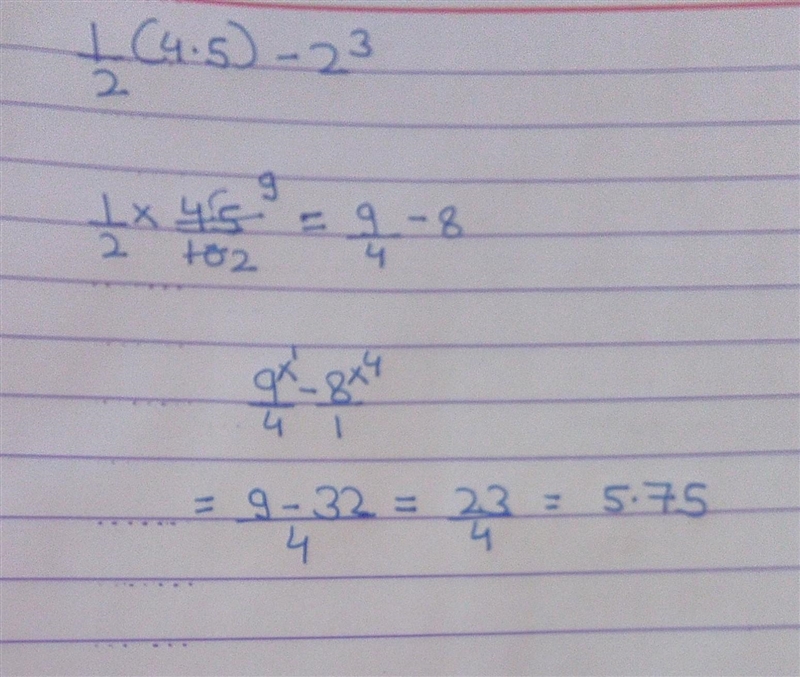 1/2 (4.5) - 2³
1/2 × 45/10 9/2 = 9/4 - 8
9×1/4 - 8×4/1
= 9 - 32/4 = 23/4 = 5.75